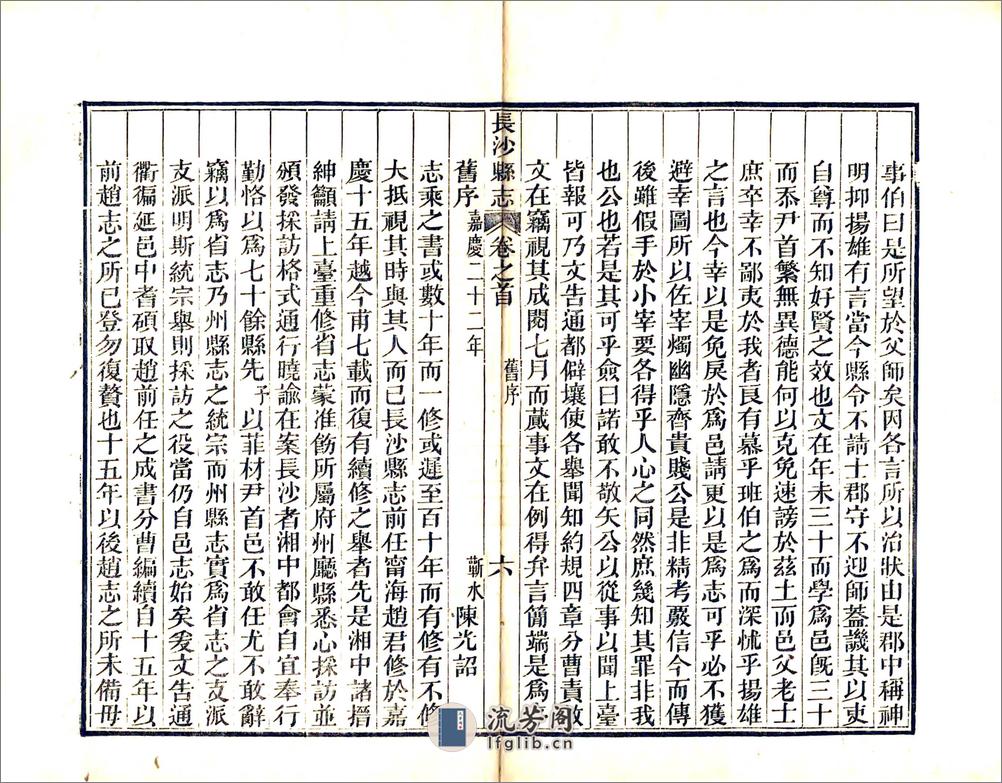 事伯曰是所望於父師矣因各言所以治狀由是郡中稱神
明抑揚雄有言當今縣令不請士郡守不迎師蓋譏其以吏
自尊而不知好賢之效也文在年未三十而學爲邑旣三十
而忝尹首繁無異德能何以克免速謗於茲土而邑父老士
庶卒幸不鄙夷於我者良有慕乎班伯之爲而深怵乎揚雄
之言也今幸以是免戾於爲邑請更以是爲志可乎必不獲
避幸圖所以佐宰燭幽隱齊貴賤公是非精考嚴信今而傳
後雖假手於小宰要各得乎人心之同然庶幾知其罪非我
也公也若是其可乎僉曰諾敢不敬矢公以從事以聞上臺
皆報可乃文告通都僻壤使各舉聞知約規四章分曹責效
文在竊視其成閱七月而蕆事文在例得弁言簡端是爲
長沙縣志 卷之首 舊序 六
舊序 嘉慶二十二年 蘄水 陳光詔
志乘之書或數十年而一修或遲至百十年而有修有不修
大抵視其時與其人而已長沙縣志前任甯海趙君修於嘉
慶十五年越今甫七載而復有續修之舉者先是湘中諸搢
紳籲請上臺重修省志蒙准飭所屬府州廳縣悉心採訪並
頒發採訪格式通行曉諭在案長沙者湘中都會自宜奉行
勤恪以爲七十餘縣先予以菲材尹首邑不敢任尤不敢辭
竊以爲省志乃州縣志之統宗而州縣志實爲省志之支派
支派明斯統宗舉則採訪之役當仍自邑志始矣爰文告通
衢徧延邑中耆碩取趙前任之成書分曹編續自十五年以
前趙志之所已登勿復贅也十五年以後趙志之所未備毋
流芳阁
lfglib.cn